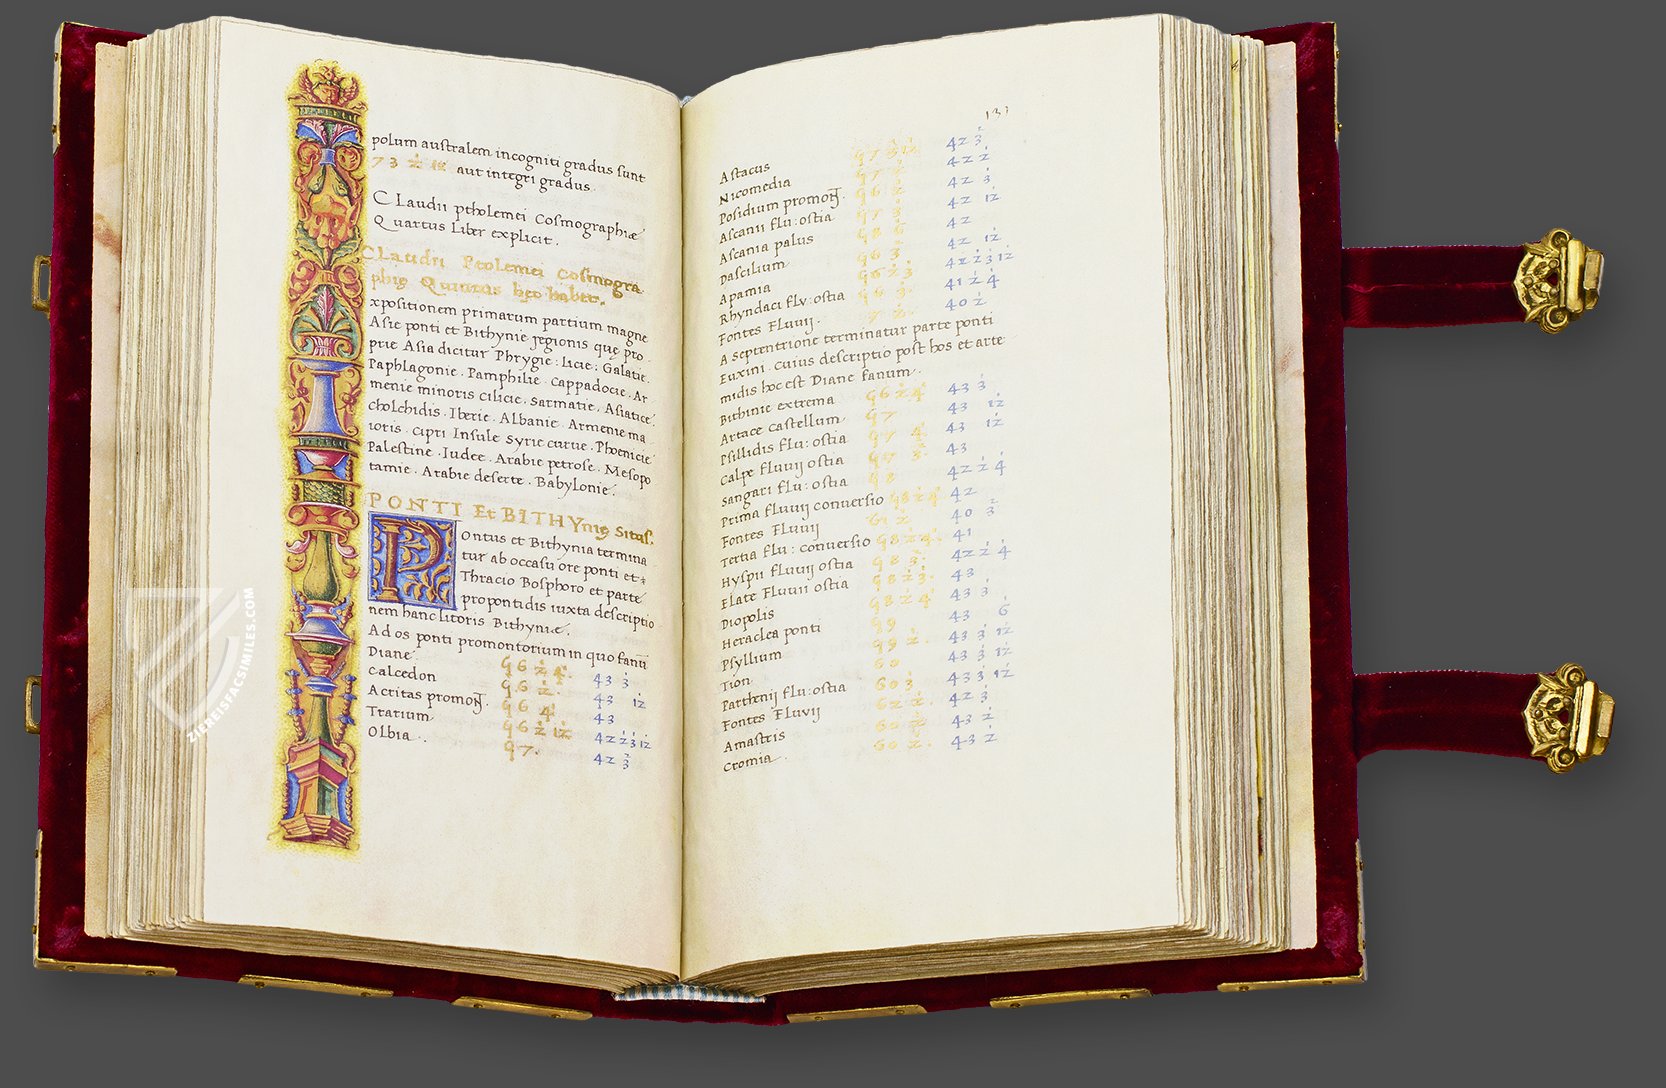 polum australem incogniti gradus sunt
73 aut integri gradus.
Claudii ptholemei Cosmographiæ
Quartus Liber explicit.
Claudii Ptolemei Cosmogra
phię Quintus hęc habet.
xpositionem primarum partium magne
Asie ponti et Bithynie regionis quę pro
prie Asia dicitur Phrygie: licie: Galatie.
Paphlagonie. Pamphilie. Cappadocie. Ar
menie minoris cilicie. Sarmatie. Asiatice.
cholchidis. Iberie. Albanie. Armenie ma
ioris. cipri Insule Syrie curue. Phoenicie
Palestine. Iudee. Arabie petrose. Mesopo
tamie. Arabie deserte. Babylonie.
PONTI Et BITHYnię Situs.
Pontus et Bithynia termina
tur ab occasu ore ponti et
Thracio Bosphoro et parte
propontidis iuxta descriptio
nem hanc litoris Bithyniæ.
Ad os ponti promontorium in quo fanū
Diane 96 2 4 43 3
Calcedon 96 2 43 12
Acritas promon. 96 4 43
Trarium 96 2 12 42 2 3 12
Olbia 97 42 3
131
Astacus 42 3
Nicomedia 97 2 42 2
Posidium promon. 96 2 42 3
Ascanii flu: ostia 97 3 42 12
Ascania palus 42
Dascilium 96 3 42 12
Apamia 96 2 3 42 2 3 12
Rhyndaci flv: ostia 96 3 41 2 4
Fontes Fluvij. 40 2
A septentrione terminatur parte ponti
Euxini. cuius descriptio post hos et arte
midis hoc est Diane fanum.
Bithinie extrema 96 2 4 43 3
Artace castellum 97 43 12
Psillidis flu: ostia 97 4 43 12
Calpe fluuij ostia 97 3 43
Sangari flu: ostia 98 42 2 4
Prima fluuij conversio 98 2 4 42
Fontes Fluuij 61 2 40 3
Tertia flu: conversio 98 2 4 41
Hyspii fluuij ostia 98 3 42 2 4
Elate Fluuij ostia 98 2 3 43
Diopolis 98 2 4 43 3
Heraclea ponti 99 43 6
Psyllium 99 2 43 3 12
Tion 60 43 3 12
Parthenij flu: ostia 60 3 43 3 12
Fontes Fluvij 60 2 42 3
Amastris 60 2 43 2
Cromia 60 2 43 2
ZIEREISFACSIMILES.COM